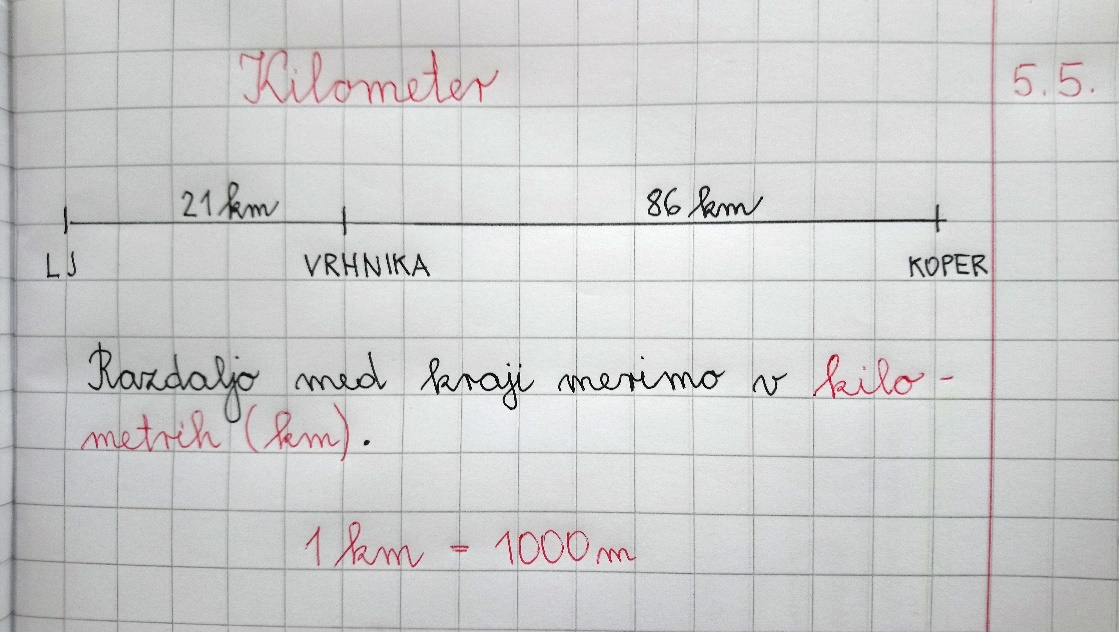 Kilometer 5.5.
21 km 86 km
LJ VRHNIKA KOPER
Razdaljo med kraji merimo v kilo-
metrih (km).
1 km = 1000 m